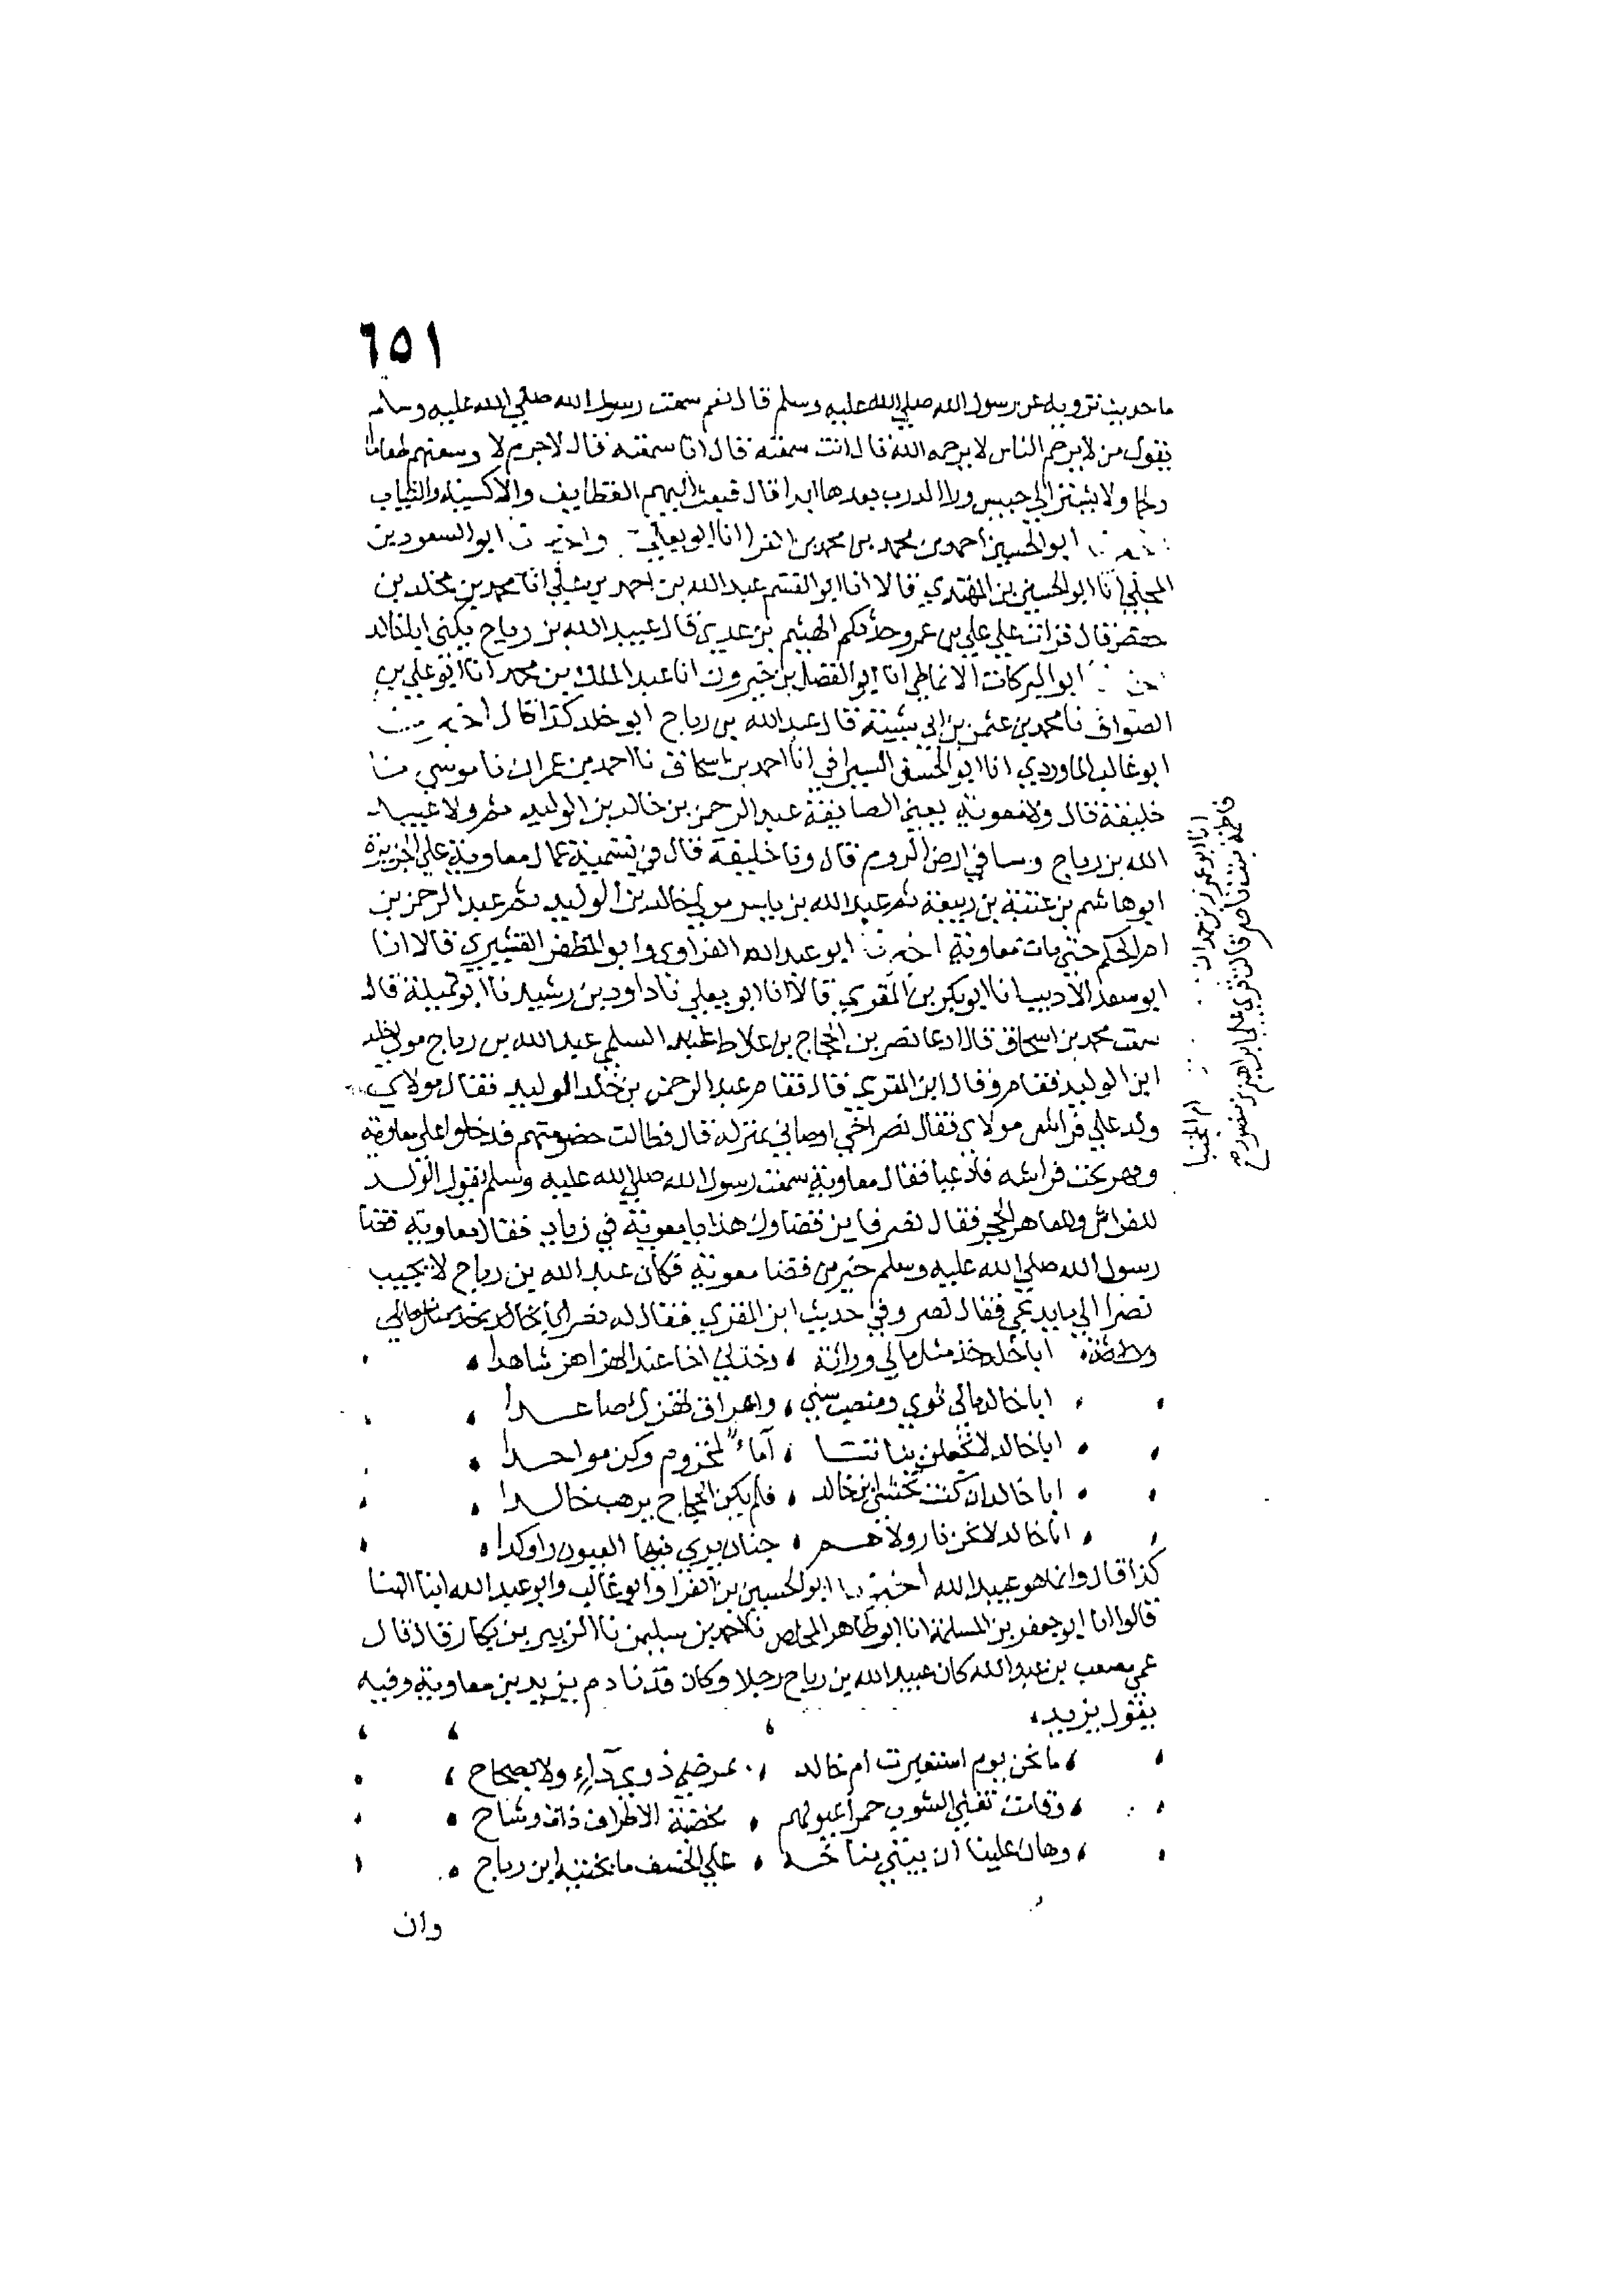 ٦٥١
ما حديث ترويه عن رسول الله صلي الله عليه وسلم قال نعم سمعت رسول الله صلي الله عليه وسلم
يقول من لا يرحم الناس لا يرحمه الله قال انت سمعته قال انا سمعته قال لا جرم لا وسعتهم طعاما
ولحما ولا يشتي الي حبيس ولا الدرب بعدها ابدا قال فبعث اليهم القطايف والاكسية والثياب
ابو الحسين احمد بن محمد بن محمد بن الفرا انا ابو يعلي واخبرنا ابو السعود بن
المجلي انا ابو الحسين بن المهتدي قالا انا ابو القسم عبد الله بن احمد بن علي انا محمد بن مخلد بن
حفص قال قرات علي علي بن عمرو حدثكم الهيثم بن عدي قال عبيد الله بن رباح يكني ابا خالد
ابو البركات الانماطي انا ابو الفضل بن خيرون انا عبد الملك بن محمد انا ابو علي بن
الصواف نا محمد بن عثمن بن ابي شيبة قال عبد الله بن رباح ابو خلد كذا قال اخبرنا
ابو غالب الماوردي انا ابو الحسن السيرافي انا احمد بن اسحاق نا احمد بن عمران نا موسي نا
خليفة قال ولا معوية يعني الصايفة عبد الرحمن بن خالد بن الوليد ثم ولا عبيد
الله بن رباح وسبا في ارض الروم قال ونا خليفة قال في تسمية عمال معاوية علي الجزيرة
ابو هاشم بن عتبة بن ربيعة ثم عبد الله بن ياسر مولي خالد بن الوليد ثم عبد الرحمن بن
ام الحكم حتي مات معاوية اخبرنا ابو عبد الله الفراوي وابو المظفر القشيري قالا انا
ابو سعد الاديب انا ابو بكر بن المقري قالا انا ابو يعلي نا داود بن رشيد نا ابو تميلة قال
سمعت محمد بن اسحاق قال ادعا نصر بن الحجاج بن علاط السلمي عبد الله بن رباح مولي خلد
ابن الوليد فقام وقال ابن المقري قال فقام عبد الرحمن بن خلد الوليد فقال مولاي
ولد علي فراش مولاي فقال نصر اخي اوصاني بمنزله قال فطالت خصومتهم فدخلوا علي معاوية
وفهر تحت فراشه فادعيا فقال معاوية سمعت رسول الله صلي الله عليه وسلم يقول الولد
للفراش وللعاهر الحجر فقال نصر فاين قضاوك هذا يا معوية في زياد فقال معاوية قضا
رسول الله صلي الله عليه وسلم خير من قضا معوية فكان عبد الله بن رباح لا يجيب
نصرا الي ما يدعي فقال نصر وفي حديث ابن المقري فقال له نصر ابا خالد خذ مثل مالي
وراثة ابا خلد خذ مثل مالي وراثة وخذني اخا عند الهزاهز شاهدا
ابا خالد مالي ثوي ومنصب سني واعراق تهزك صاعدا
ابا خالد لا تجعلن بناتنا آماء لمخزوم وكن مواجدا
ابا خالد ان كنت تخشي ابن خالد فلم يكن الحجاج يرهب خالدا
ابا خالد لا نحن نار ولا هم جنان يري فيها العيون رواكدا
كذا قال وانما هو عبيد الله اخبرنا ابو الحسين بن الفرا وابو غالب وابو عبد الله ابنا البنا
قالوا انا ابو جعفر بن المسلمة انا ابو طاهر المخلص نا احمد بن سليمن نا الزبير بن بكار قال قال
عمي مصعب بن عبد الله كان عبيد الله بن رباح رجلا وكان قد نادم يزيد بن معاوية وفيه
يقول يزيد
ما نحن يوم استعبرت ام خالد بمرضي ذوي دآء ولا بصحاح
وقامت تغلي الشوب حمرا عيونهم مخضبة الاطراف ذات وشاح
وهان علينا ان بيتي بناخسه علي الخسف ما تختنه ابن رباح
وان
ام المجتبا
فاطمة بنت ناصر قالت قري علي ابراهيم بن منصور
انا ابو عمرو بن حمدان